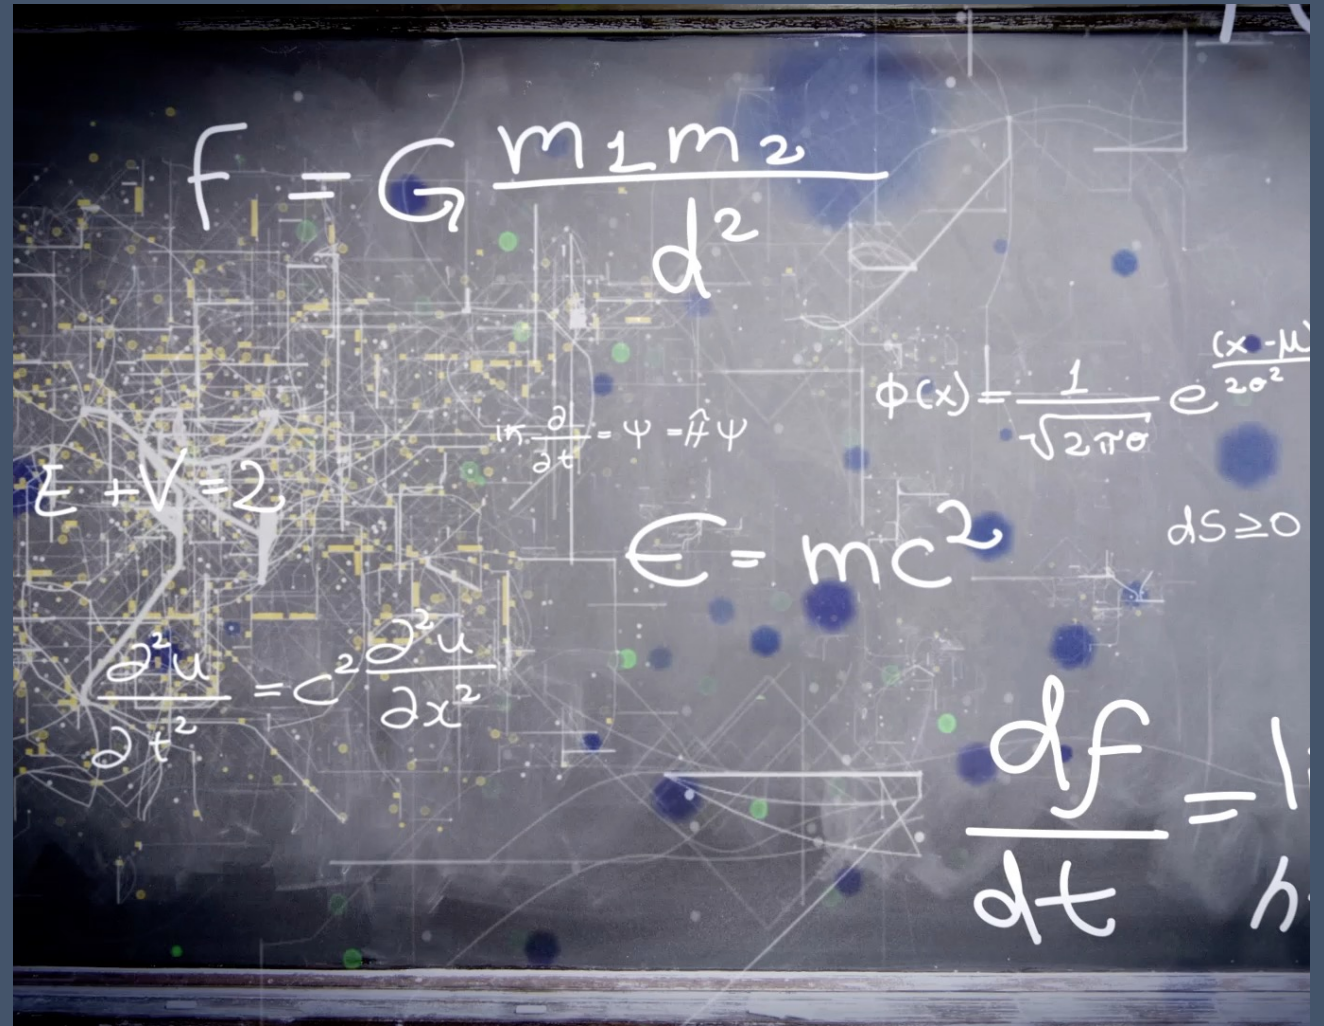 F = G m1m2 / d²
φ(x) = 1 / √2πσ e^(x-μ / 2σ²
iħ ∂ / ∂t = Ψ = Ĥ Ψ
E + V = 2
dS ≥ 0
E = mc²
∂²u / ∂t² = c² ∂²u / ∂x²
df / dt =